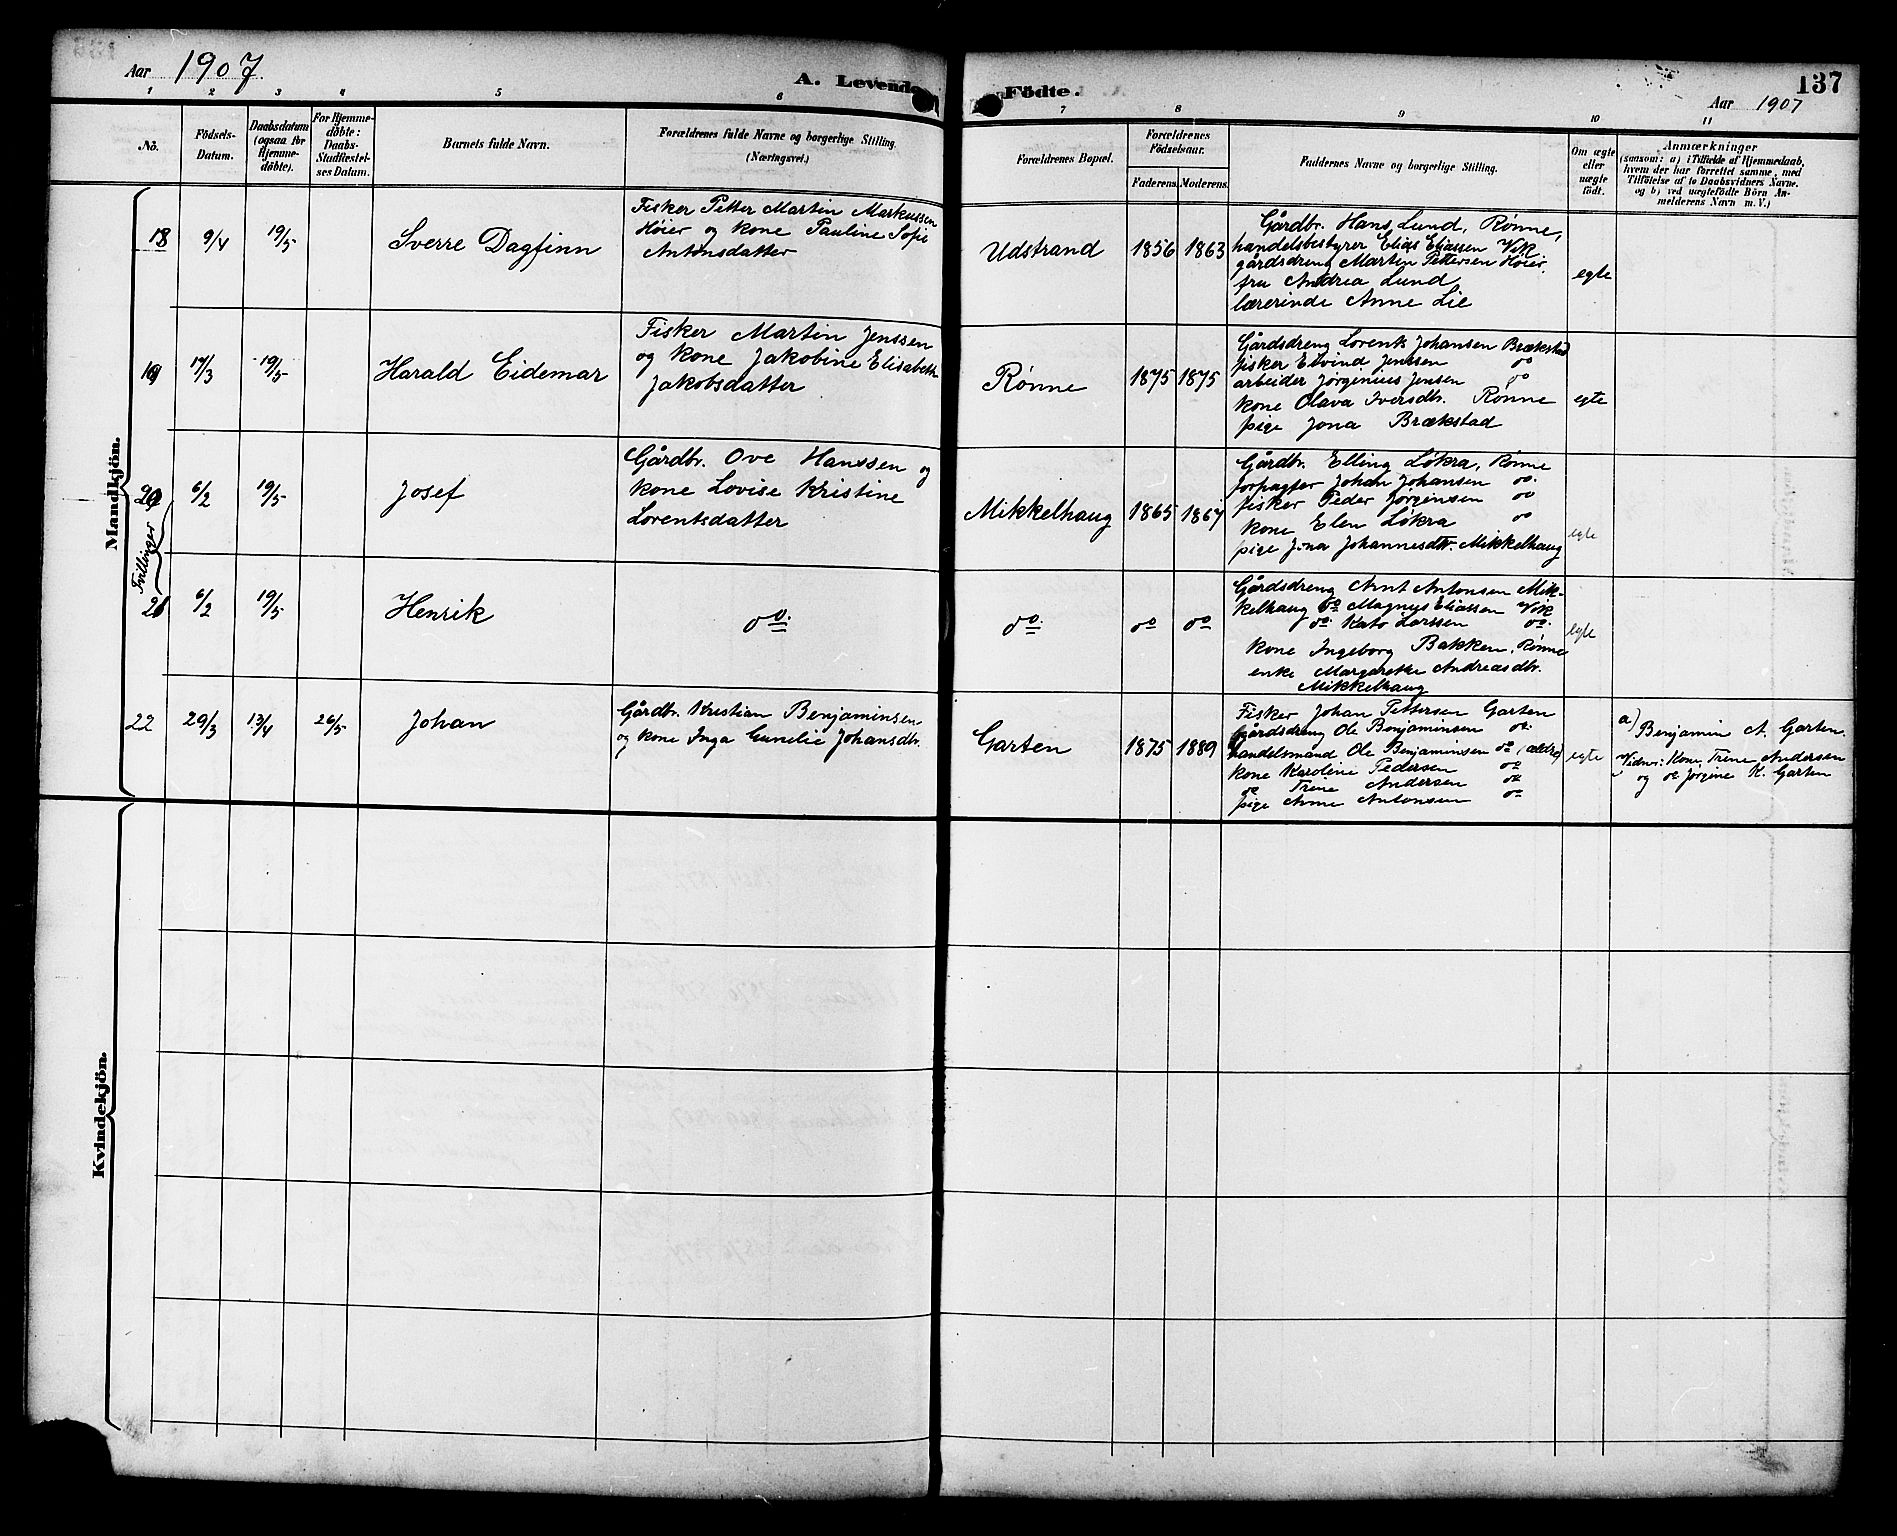 Aar 1907
A. Levende
Födte.
137
Aar 1907
1 2 3 4 5 6 7 8 9 10 11
No.
Födsels-
Datum.
Daabsdatum
(ogsaa for
Hjemme-
døbte).
For Hjemme-
døbte:
Daabs-
Stadfæstel-
ses Datum.
Barnets fulde Navn.
Forældrenes fulde Navne og borgerlige Stilling.
(Næringsvei.)
Forældrenes Bopæl.
Forældrenes
Födselsaar.
Faderens. Moderens.
Faddernes Navne og borgerlige Stilling.
Om ægte
eller
uægte
født.
Anmærkninger
(saasom: a) i Tilfælde af Hjemmedaab,
hvem der har forrettet samme, med
Tilføielse af to Daabsvidners Navne.
og b) ved uægtefödte Börn An-
melderens Navn m. V.)
Mandkjön.
18 9/4 19/5 Sverre Dagfinn
Fisker Petter Martin Markussen
Høier og kone Pauline Sofie
Antonsdatter
Udstrand 1856 1863
Gårdbr. Hans Lund, Rønne,
handelsbestyrer Elias Eliassen Vik
gårdsdreng Martin Pettersen Høier,
fru Andrea Lund,
lærerinde Anne Lie
egte
19 17/3 19/5 Harald Eidemar
Fisker Martin Jenssen
og kone Jakobine Elisabeth
Jakobsdatter
Rønne 1875 1875
Gårdsdreng Lorents Johansen Brækstad
fisker Eivind Jenssen do
arbeider Jørgenius Jensen do
kone Olava Iversdtr. Rønne
pige Jona Brækstad
egte
Tvillinger
20 6/2 19/5 Josef
Gårdbr. Ove Hanssen og
kone Lovise Kristine
Lorentsdatter
Mikkelhaug 1865 1867
Gårdbr. Elling Løkra, Rønne
forpagter Johan Johansen do.
fisker Peder Jørgensen do
kone Elen Løkra do
pige Jona Johannesdtr. Mikkelhaug
egte
21 6/2 19/5 Henrik
do.
do. do do
Gårdsdreng Arnt Antonsen Mik-
kelhaug do Magnus Eliassen Vik
do. Kato Larssen do.
kone Ingeborg Bakken, Rønne
enke Margarethe Andreasdtr.
Mikkelhaug
egte
22 29/3 13/4 26/5 Johan
Gårdbr. Kristian Benjaminsen
og kone Inga Gunelie Johansdtr.
Garten 1875 1889
Fisker Johan Pettersen Garten
Gårdsdreng Ole Benjaminsen do.
handelsmand Ole Benjaminsen do (ældre)
kone Karoline Pedersen do
do Trine Andersen do
pige Anne Antonsen do
egte
a) Benjamin A. Garten.
Vidner: Kone Trine Andersen
og do Jørgine K. Garten
Kvindekjön.